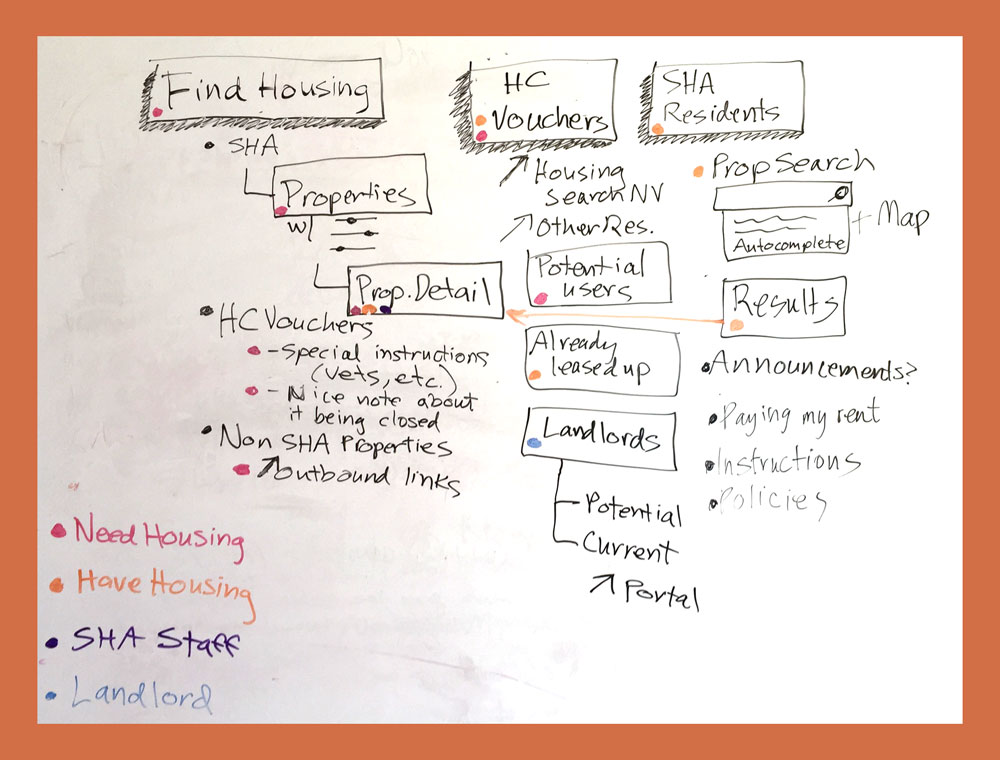 Find Housing
• SHA
Properties
w/
Prop. Detail
• HC Vouchers
• - Special instructions
(vets, etc.)
• - Nice note about
it being closed
• Non SHA Properties
• ↗ Outbound links
HC
Vouchers
↗ Housing
search NV
↗ Other Res.
Potential
users
Already
leased up
Landlords
Potential
Current
↗ Portal
SHA
Residents
• Prop Search
Autocomplete
+ Map
Results
• Announcements?
• Paying my rent
• Instructions
• Policies
• Need Housing
• Have Housing
• SHA Staff
• Landlord